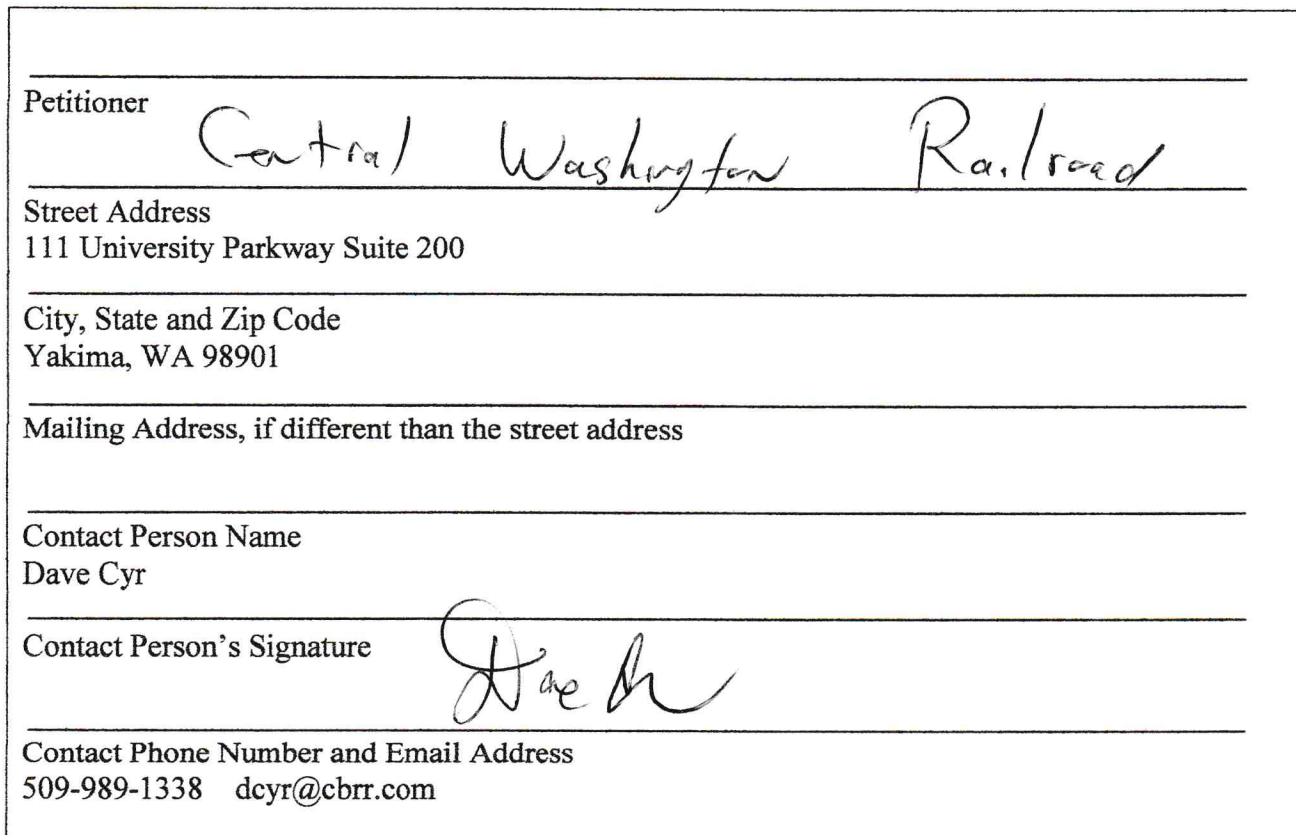 Petitioner
Central Washington Railroad
Street Address
111 University Parkway Suite 200
City, State and Zip Code
Yakima, WA 98901
Mailing Address, if different than the street address
Contact Person Name
Dave Cyr
Contact Person's Signature
Contact Phone Number and Email Address
509-989-1338 dcyr@cbrr.com